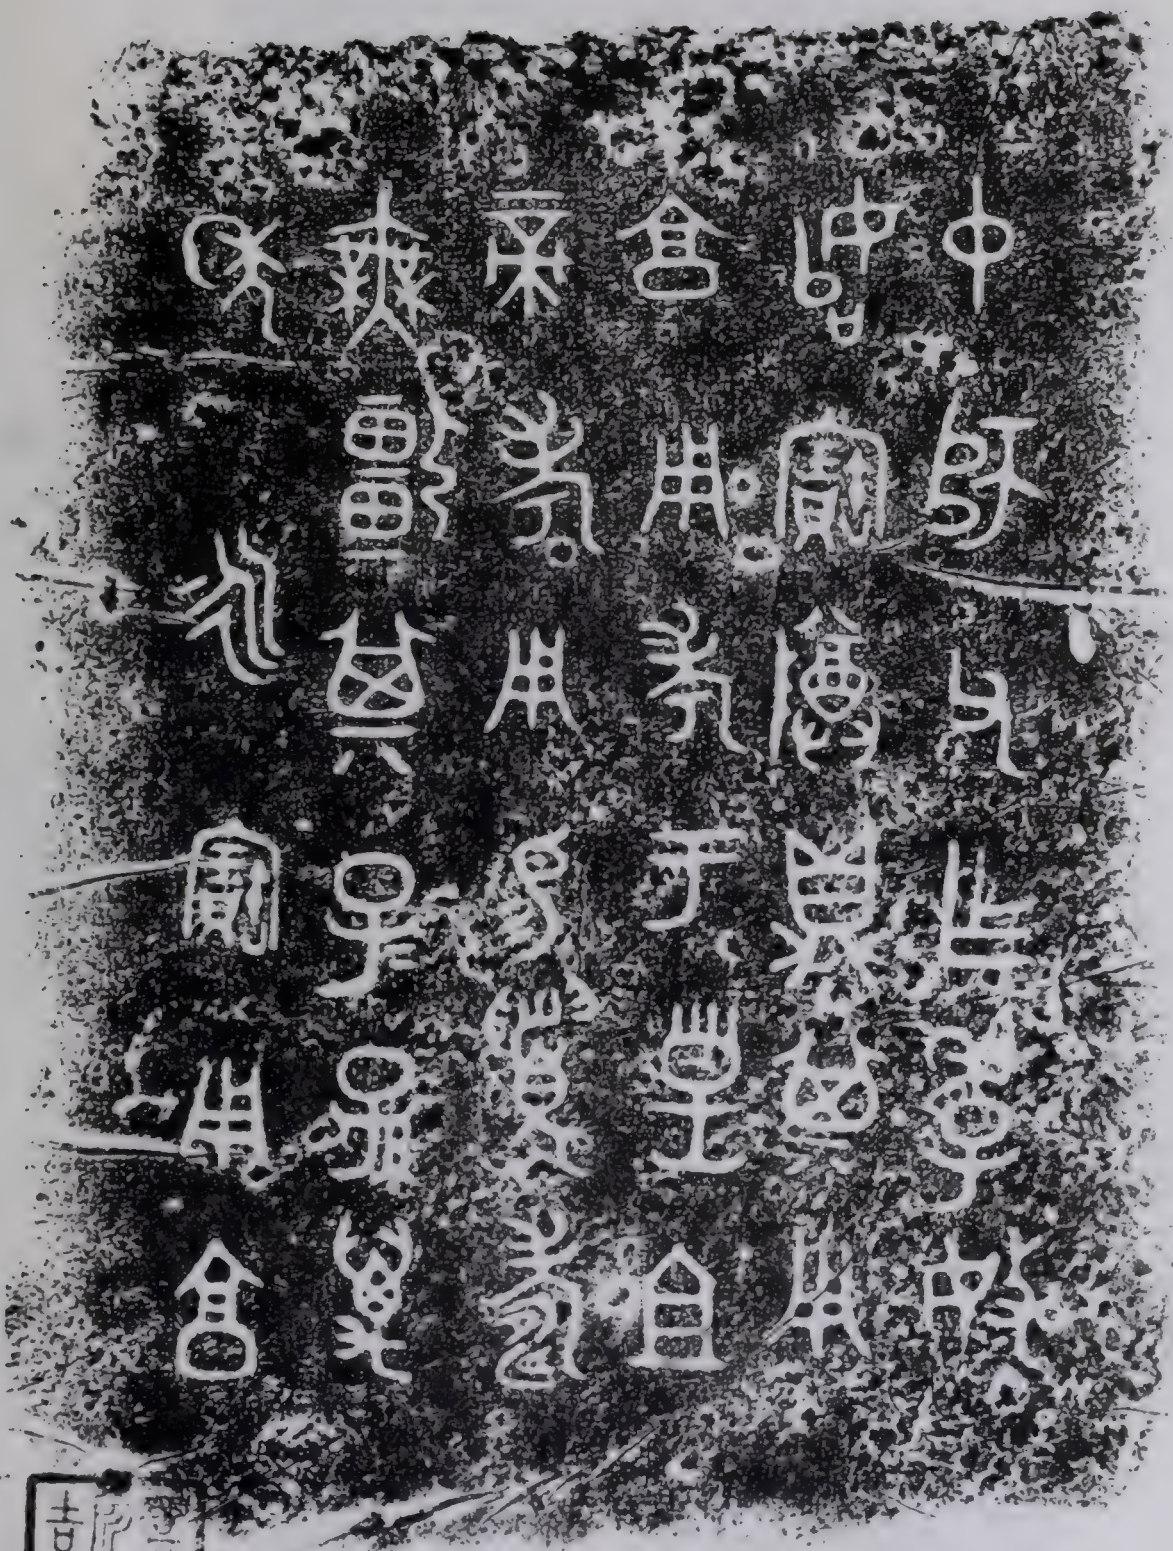 中師父乍季
始寶尊鼎其用
享用考于皇且
帝考用易眉壽
無疆其子孫萬
年永寶用享